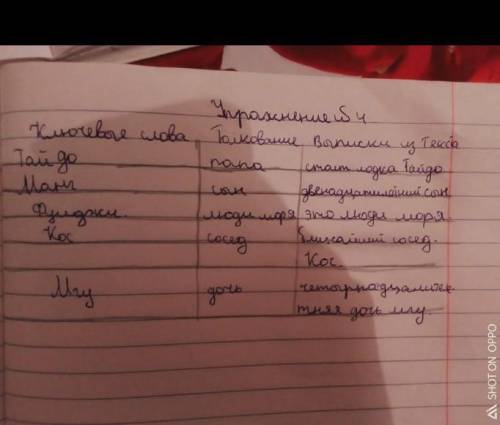 Упражнение №4
Ключевые слова Толкование Выписки из текста
Тайдо папа стоит лодка Тайдо
Манг сын двенадцатилетний сын
Фунджи. люди моря это люди моря.
Кос сосед ближайший сосед.
Кос.
Мгу дочь четырнадцатиле-
тняя дочь мгу.
SHOT ON OPPO